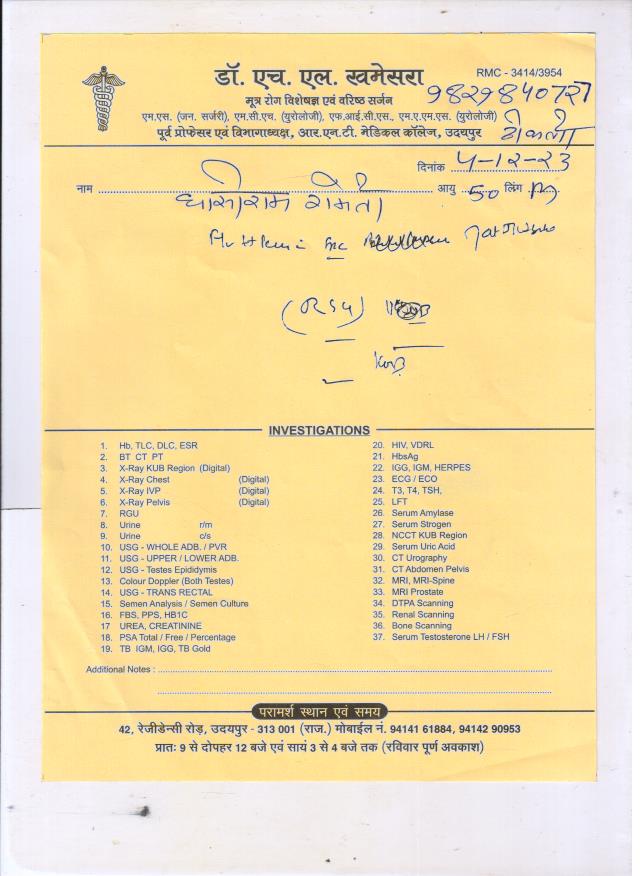 डॉ. एच. एल. खमेसरा
RMC - 3414/3954
मूत्र रोग विशेषज्ञ एवं वरिष्ठ सर्जन
9829840727
एम.एस. (जन. सर्जरी), एम.सी.एच. (यूरोलोजी), एफ.आई.सी.एस., एम.ए.एम.एस. (यूरोलोजी)
पूर्व प्रोफेसर एवं विभागाध्यक्ष, आर.एन.टी. मेडिकल कॉलेज, उदयपुर
दिनांक 4-12-23
नाम आयु 50 लिंग M
KUB
INVESTIGATIONS
1. Hb, TLC, DLC, ESR
2. BT CT PT
3. X-Ray KUB Region (Digital)
4. X-Ray Chest (Digital)
5. X-Ray IVP (Digital)
6. X-Ray Pelvis (Digital)
7. RGU
8. Urine r/m
9. Urine c/s
10. USG - WHOLE ADB. / PVR
11. USG - UPPER / LOWER ADB.
12. USG - Testes Epididymis
13. Colour Doppler (Both Testes)
14. USG - TRANS RECTAL
15. Semen Analysis / Semen Culture
16. FBS, PPS, HB1C
17 UREA, CREATININE
18. PSA Total / Free / Percentage
19. TB IGM, IGG, TB Gold
20. HIV, VDRL
21. HbsAg
22. IGG, IGM, HERPES
23. ECG / ECO
24. T3, T4, TSH,
25. LFT
26. Serum Amylase
27. Serum Strogen
28. NCCT KUB Region
29. Serum Uric Acid
30. CT Urography
31. CT Abdomen Pelvis
32. MRI, MRI-Spine
33. MRI Prostate
34. DTPA Scanning
35. Renal Scanning
36. Bone Scanning
37. Serum Testosterone LH / FSH
Additional Notes :
परामर्श स्थान एवं समय
42, रेजीडेन्सी रोड़, उदयपुर - 313 001 (राज.) मोबाईल नं. 94141 61884, 94142 90953
प्रातः 9 से दोपहर 12 बजे एवं सायं 3 से 4 बजे तक (रविवार पूर्ण अवकाश)